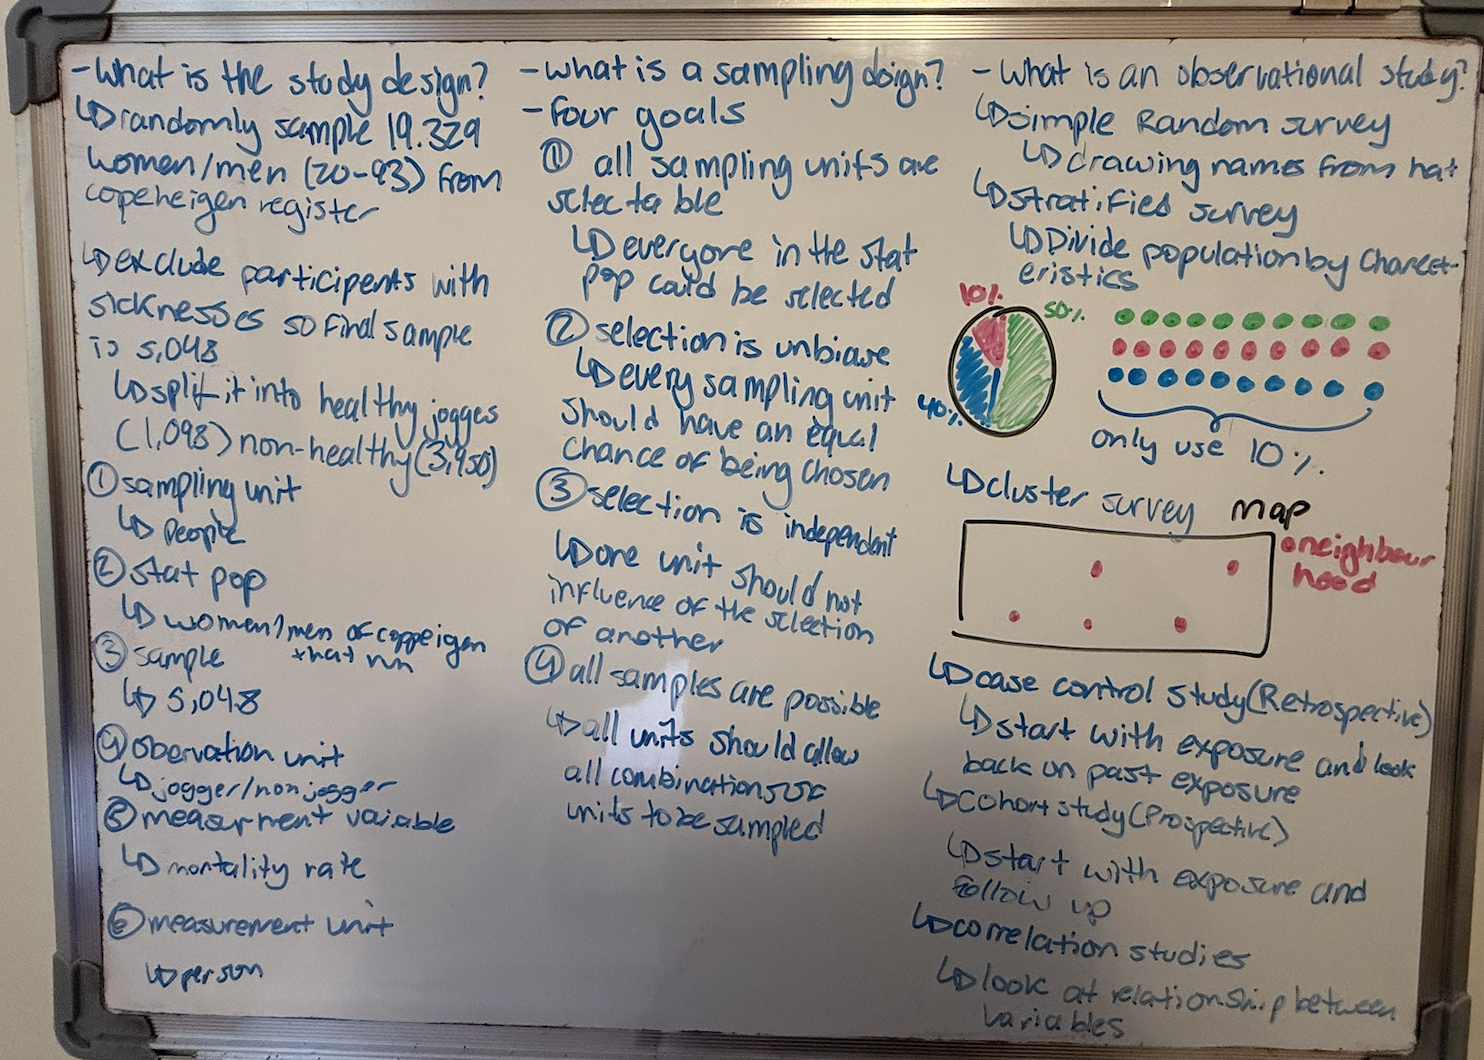 -What is the study design?
↳randomly sample 19.329
women/men (20-93) from
copeheigen register
↳exclude participents with
sicknesses so final sample
is 5,048
↳split it into healthy jogges
(1,098) non-healthy (3,950)
① sampling unit
↳ People
② stat pop
↳ women/men of coppeigen
that run
③ sample
↳ 5,048
④ obervation unit
↳ jogger/non jogger
⑤ measurment variable
↳ mortality rate
⑥ measurement unit
↳ person
-what is a sampling doign?
-four goals
① all sampling units are
selectable
↳ everyone in the stat
pop could be selected
② selection is unbiase
↳ every sampling unit
should have an equal
chance of being chosen
③ selection is independent
↳ one unit should not
influence of the selection
of another
④ all samples are possible
↳ all units should allow
all combinations of
units to be sampled
-What is an observational study?
↳simple Random survey
↳ drawing names from hat
↳stratified survey
↳Divide population by charect-
eristics
10%
50%
40%
only use 10%.
↳cluster survey map
neighbour
hood
↳case control study (Retrospective)
↳start with exposure and look
back on past exposure
↳cohort study (Prospective)
↳start with exposure and
follow up
↳correlation studies
↳look at relationship between
variables